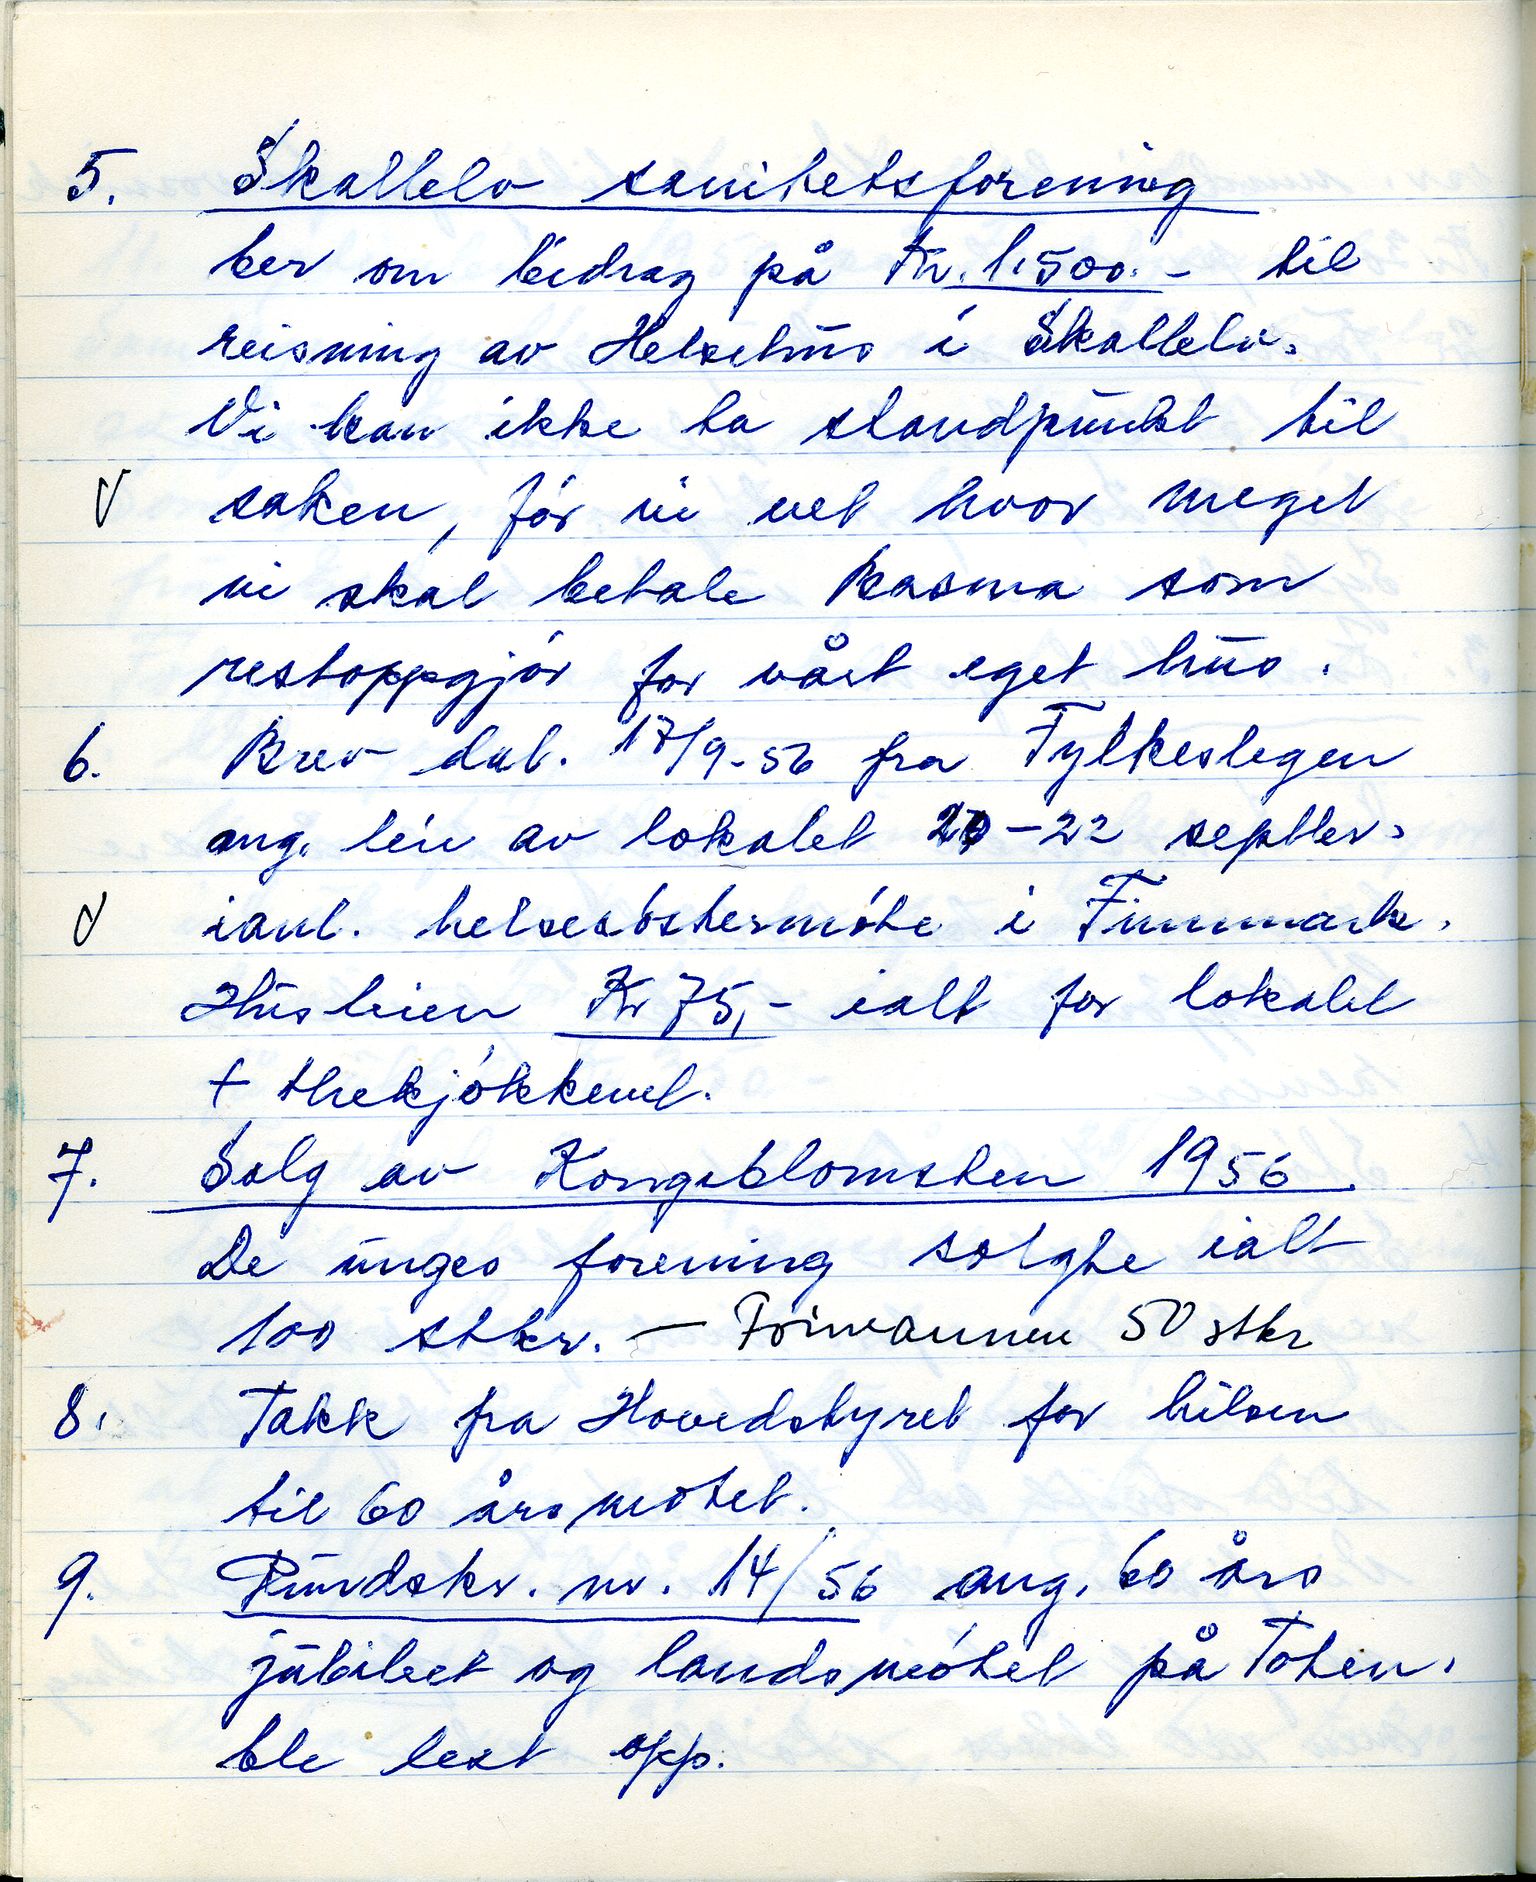 5. Skallelv sanitetsforening
ber om bidrag på Kr. 1.500.- til
reisning av Helsehus i Skallelv.
Vi kan ikke ta standpunkt til
V saken, før vi vet hvor meget
vi skal betale Kasma som
restoppgjør for vårt eget hus.
6. Brev dat. 17/9-56 fra Fylkeslegen
ang. leie av lokalet 20-22 septber.
V ianl. helsesøstermøte i Finnmark.
Husleien Kr 75,- ialt for lokalet
+ thekjøkkenet.
7. Salg av Kongeblomsten 1956.
De unges forening solgte ialt
100 stkr. — Frivannen 50 stkr
8. Takk fra Hovedstyret for hilsen
til 60 årsmøtet.
9. Rundskr. nr. 14/56 ang. 60 års
jubileet og landsmøtet på Toten.
ble lest opp.